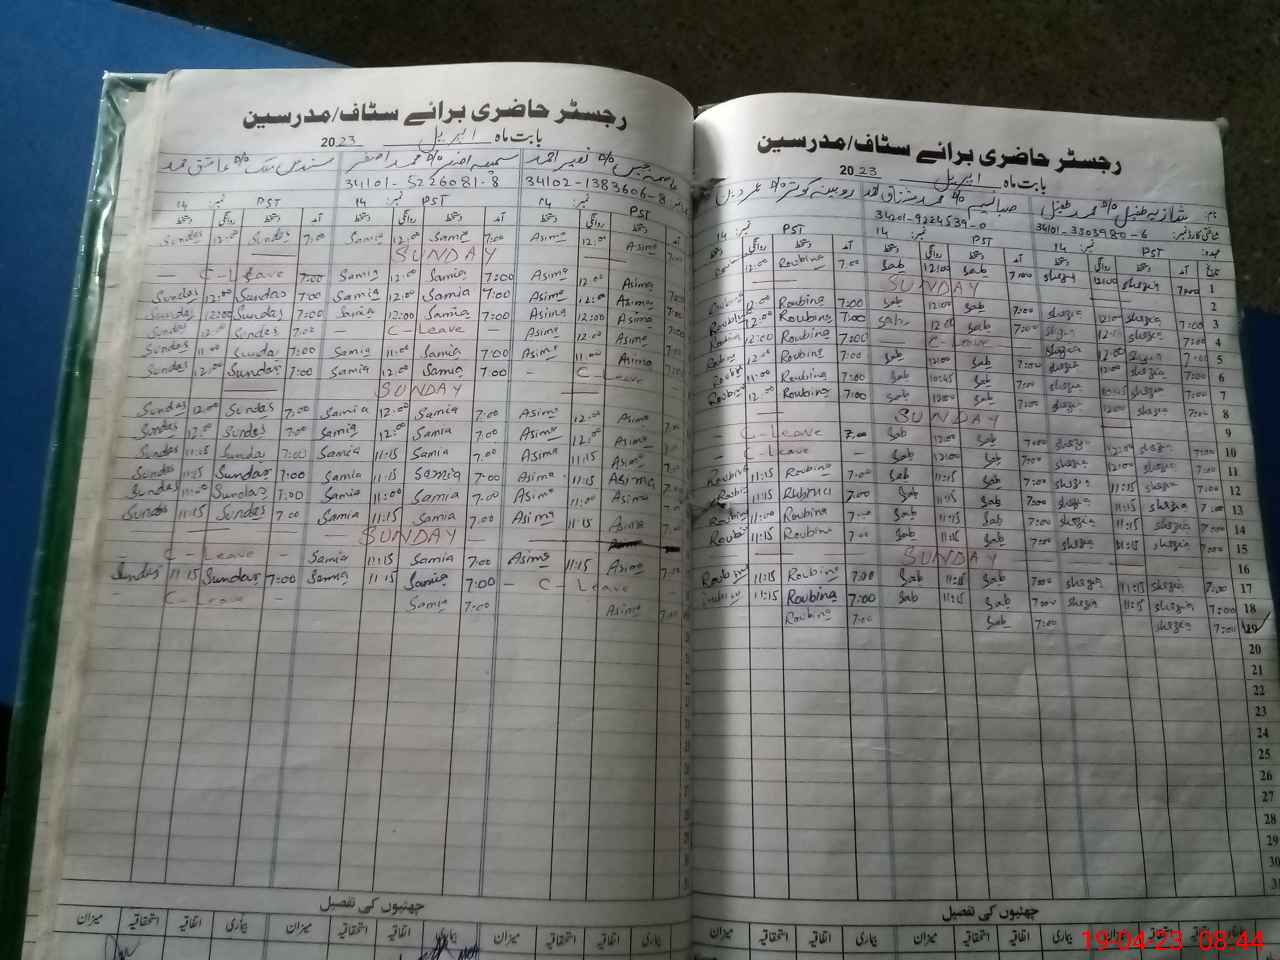 رجسٹر حاضری برائے سٹاف/مدرسین
بابت ماہ اپریل 2023
شازیہ طفیل د/o محمد طفیل
34101-3303980-6
34201-9224539-0
نمبر: 14 PST نمبر: 14 PST نمبر: 14
تاریخ آمد دستخط روانگی دستخط آمد دستخط روانگی دستخط آمد دستخط روانگی دستخط
1 7:00 shazia 12:00 shazia 7:00 Sab 12:00 Sab 7:00 Roubina 12:00
2 SUNDAY
3 7:00 shazia 12:00 shazia 7:00 Sab 12:00 Sab 7:00 Roubina 12:00 Roubina
4 7:00 shazia 12:00 shazia 7:00 Sab 12:00 Sab 7:00 Roubina 12:00 Roubina
5 7:00 shazia 12:00 shazia — C-Leave — 7:00 Roubina 12:00 Roubina
6 7:00 shazia 12:00 shazia 7:00 Sab 12:00 Sab 7:00 Roubina 12:00 Roubina
7 7:00 shazia 10:45 shazia 7:00 Sab 10:45 Sab 7:00 Roubina 11:00 Roubina
8 7:00 shazia 12:00 shazia 7:00 Sab 12:00 Sab 7:00 Roubina 12:00 Roubina
9 SUNDAY
10 7:00 shazia 12:00 shazia 7:00 Sab 12:00 Sab 7:00 C-Leave —
11 7:00 shazia 12:00 shazia 7:00 Sab 12:00 Sab — C-Leave —
12 7:00 shazia 11:15 shazia 7:00 Sab 11:15 Sab 7:00 Roubina 11:15 Roubina
13 7:00 shazia 11:15 shazia 7:00 Sab 11:15 Sab 7:00 Rubina 11:15 Roubina
14 7:00 shazia 11:15 shazia 7:00 Sab 11:15 Sab 7:00 Roubina 11:00 Roubina
15 7:00 shazia 11:15 shazia 7:00 Sab 11:15 Sab 7:00 Roubina 11:15 Roubina
16 SUNDAY
17 7:00 shazia 11:15 shazia 7:00 Sab 11:15 Sab 7:00 Roubina 11:15 Roubina
18 7:00 shazia 11:15 shazia 7:00 Sab 11:15 Sab 7:00 Roubina 11:15
19 7:00 shazia 7:00 Sab 7:00 Roubina
20
21
22
23
24
25
26
27
28
29
30
31
چھٹیوں کی تفصیل
بیماری اتفاقیہ استحقاقیہ میزان بیماری اتفاقیہ استحقاقیہ میزان
رجسٹر حاضری برائے سٹاف/مدرسین
بابت ماہ اپریل 2023
34102-1383606-8
34101-5226081-8
PST نمبر: 14 PST نمبر: 14 PST نمبر: 14
آمد دستخط روانگی دستخط آمد دستخط روانگی دستخط آمد دستخط روانگی دستخط
7:00 Asima 12:00 Asima 7:00 Samia 12:00 Samia 7:00 Sundas 12:00 Sundas
SUNDAY
7:00 Asima 12:00 Asima 7:00 Samia 12:00 Samia 7:00 C-Leave —
7:00 Asima 12:00 Asima 7:00 Samia 12:00 Samia 7:00 Sundas 12:00 Sundas
7:00 Asima 12:00 Asima 7:00 Samia 12:00 Samia 7:00 Sundas 12:00 Sundas
7:00 Asima 12:00 Asima — C-Leave — 7:00 Sundas 12:00 Sundas
7:00 Asima 11:00 Asima 7:00 Samia 11:00 Samia 7:00 Sundas 11:00 Sundas
7:00 C-Leave — 7:00 Samia 12:00 Samia 7:00 Sundas 12:00 Sundas
SUNDAY
7:00 Asima 12:00 Asima 7:00 Samia 12:00 Samia 7:00 Sundas 12:00 Sundas
7:00 Asima 12:00 Asima 7:00 Samia 12:00 Samia 7:00 Sundas 12:00 Sundas
7:00 Asima 11:15 Asima 7:00 Samia 11:15 Samia 7:00 Sundas 11:15 Sundas
7:00 Asima 11:15 Asima 7:00 Samia 11:15 Samia 7:00 Sundas 11:15 Sundas
7:00 Asima 11:00 Asima 7:00 Samia 11:00 Samia 7:00 Sundas 11:00 Sundas
7:00 Asima 11:15 Asima 7:00 Samia 11:15 Samia 7:00 Sundas 11:15 Sundas
SUNDAY
7:00 Asima 11:15 Asima 7:00 Samia 11:15 Samia — C-Leave —
C-Leave — 7:00 Samia 11:15 Samia 7:00 Sundas 11:15 Sundas
7:00 Asima 7:00 Samia — C-Leave —
چھٹیوں کی تفصیل
بیماری اتفاقیہ استحقاقیہ میزان بیماری اتفاقیہ استحقاقیہ میزان بیماری اتفاقیہ استحقاقیہ میزان
19-04-23 08:44